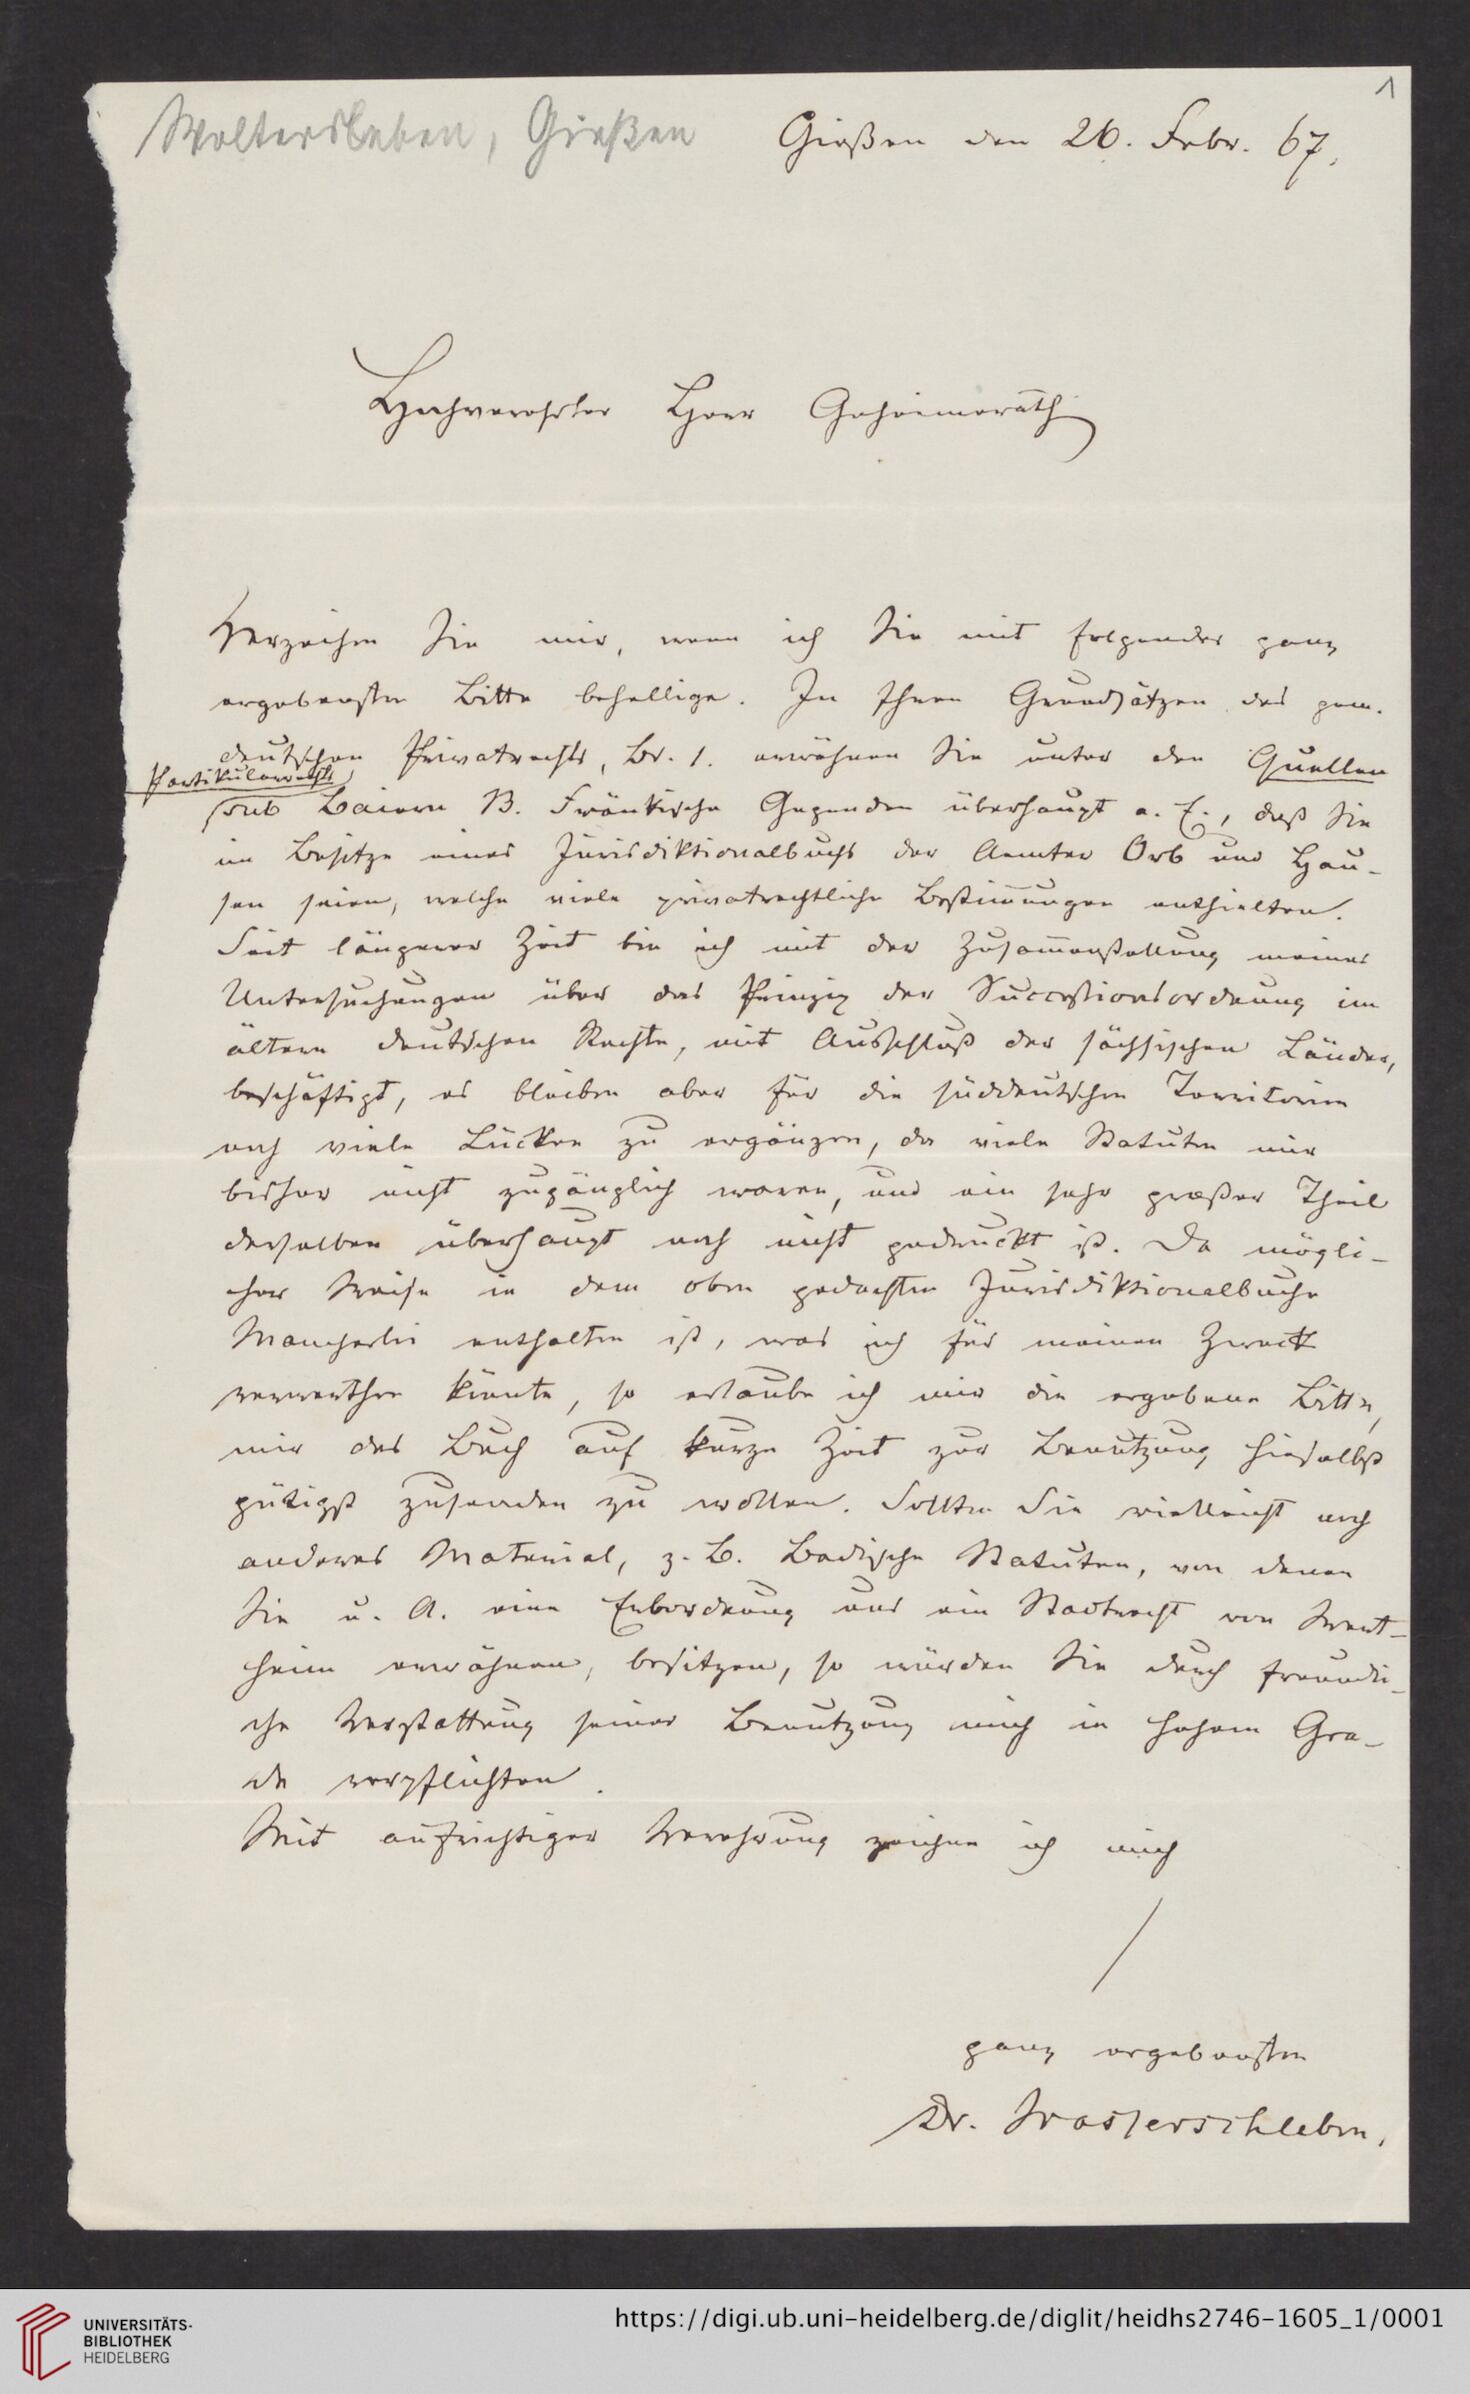 1
Woltersleben, Gießen
Gießen den 26. Febr. 67.
Hochverehrter Herr Geheimerath
Verzeihen Sie mir, wenn ich Sie mit folgender ganz
ergebensten Bitte behellige. In Ihren Grundsätzen des gem.
deutschen Privatrechts, Bd. 1. erwähnen Sie unter den Quellen
Partikularrechts
sub Baiern B. Fränkische Gegenden überhaupt a. E., daß Sie
im Besitze eines Jurisdiktionalbuchs der Aemter Orb und Hau-
sen seien, welche viele privatrechtliche Bestimmungen enthielten.
Seit längerer Zeit bin ich mit der Zusammenstellung meiner
Untersuchungen über das Prinzip der Successionsordnung im
ältern deutschen Rechte, mit Ausschluß der sächsischen Länder,
beschäftigt, es bleiben aber für die süddeutschen Territorien
noch viele Lücken zu ergänzen, da viele Statuten mir
bisher nicht zugänglich waren, und ein sehr großer Theil
derselben überhaupt noch nicht gedruckt ist. Da mögli-
cher Weise in dem oben gedachten Jurisdiktionalbuche
Mancherlei enthalten ist, was ich für meinen Zweck
verwerthen könnte, so erlaube ich mir die ergebene Bitte,
mir das Buch auf kurze Zeit zur Benutzung hieselbst
gütigst zusenden zu wollen. Sollten Sie vielleicht noch
anderes Material, z. B. Badische Statuten, von denen
Sie u. A. eine Erbordnung und ein Stadtrecht von Wert-
heim erwähnen, besitzen, so würden Sie durch freundli-
che Verstattung seiner Benutzung mich in hohem Gra-
de verpflichten.
Mit aufrichtiger Verehrung zeichne ich mich
ganz ergebensten
Dr. Wasserschleben.
UNIVERSITÄTS-
BIBLIOTHEK
HEIDELBERG
https://digi.ub.uni-heidelberg.de/diglit/heidhs2746-1605_1/0001